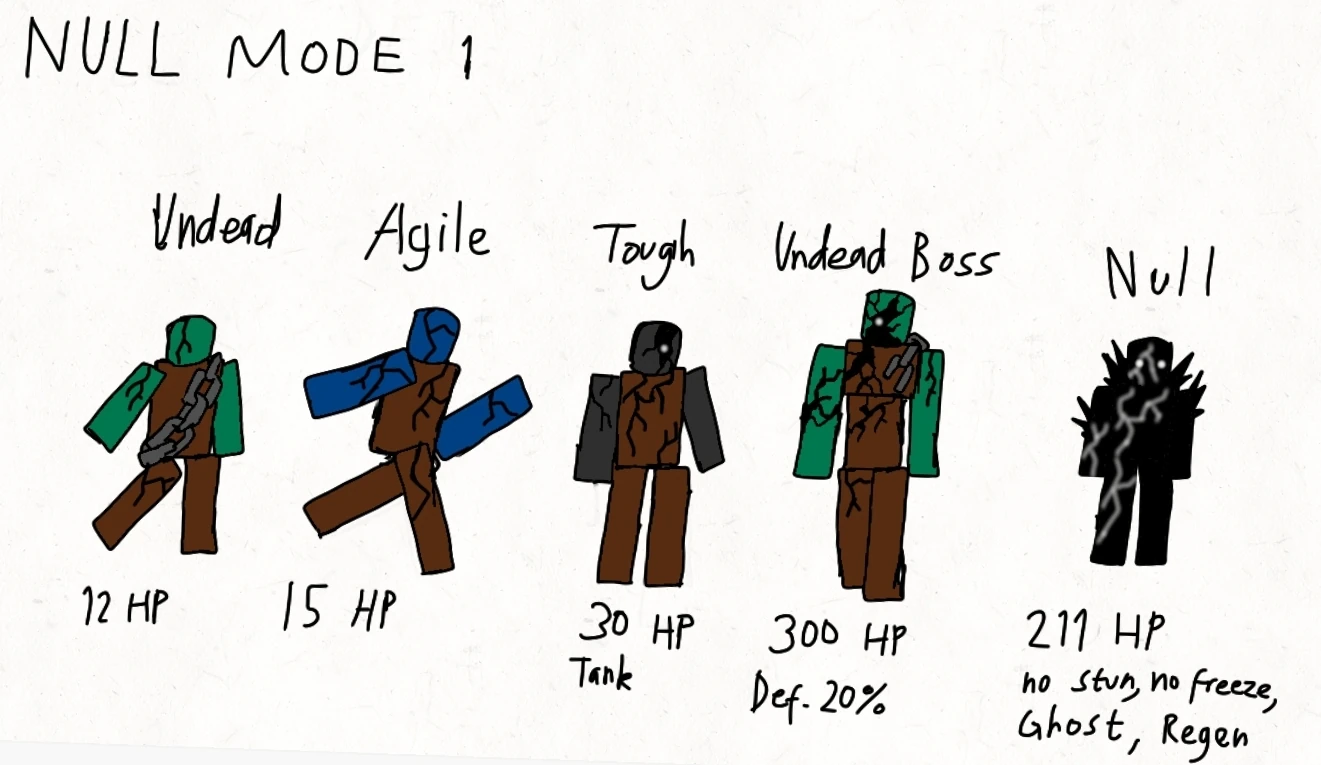 NULL MODE 1
Undead
Agile
Tough
Undead Boss
Null
12 HP
15 HP
30 HP
Tank
300 HP
Def. 20%
211 HP
no stun, no freeze,
Ghost, Regen